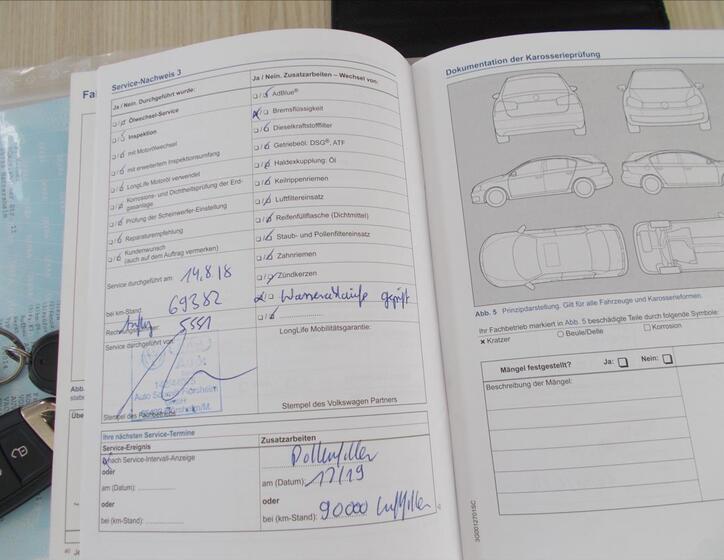 Service-Nachweis 3
Ja / Nein. Durchgeführt wurde:
Ölwechsel-Service
Inspektion
mit Motorölwechsel
mit erweitertem Inspektionsumfang
LongLife Motoröl verwendet
Korrosions- und Dichtheitsprüfung der Erd-
gasanlage
Prüfung der Scheinwerfer-Einstellung
Reparaturempfehlung
Kundenwunsch
(auch auf dem Auftrag vermerken)
Service durchgeführt am: 14.8.18
bei km-Stand 69382
5551
Service durchgeführt von:
Stempel des Fachbetriebs
Ja / Nein. Zusatzarbeiten – Wechsel von:
AdBlue®
Bremsflüssigkeit
Dieselkraftstofffilter
Getriebeöl: DSG®, ATF
Haldexkupplung: Öl
Keilrippenriemen
Luftfiltereinsatz
Reifenfüllflasche (Dichtmittel)
Staub- und Pollenfiltereinsatz
Zahnriemen
Zündkerzen
LongLife Mobilitätsgarantie:
Stempel des Volkswagen Partners
Ihre nächsten Service-Termine
Service-Ereignis
nach Service-Intervall-Anzeige
oder
am (Datum):
oder
bei (km-Stand):
Zusatzarbeiten
Pollenfilter
am (Datum):
oder
bei (km-Stand): 90000 Luftfilter
Dokumentation der Karosserieprüfung
Abb. 5 Prinzipdarstellung. Gilt für alle Fahrzeuge und Karosserieformen.
Ihr Fachbetrieb markiert in Abb. 5 beschädigte Teile durch folgende Symbole:
× Kratzer ○ Beule/Delle □ Korrosion
Mängel festgestellt? Ja: □ Nein: □
Beschreibung der Mängel:
3G0012701SC